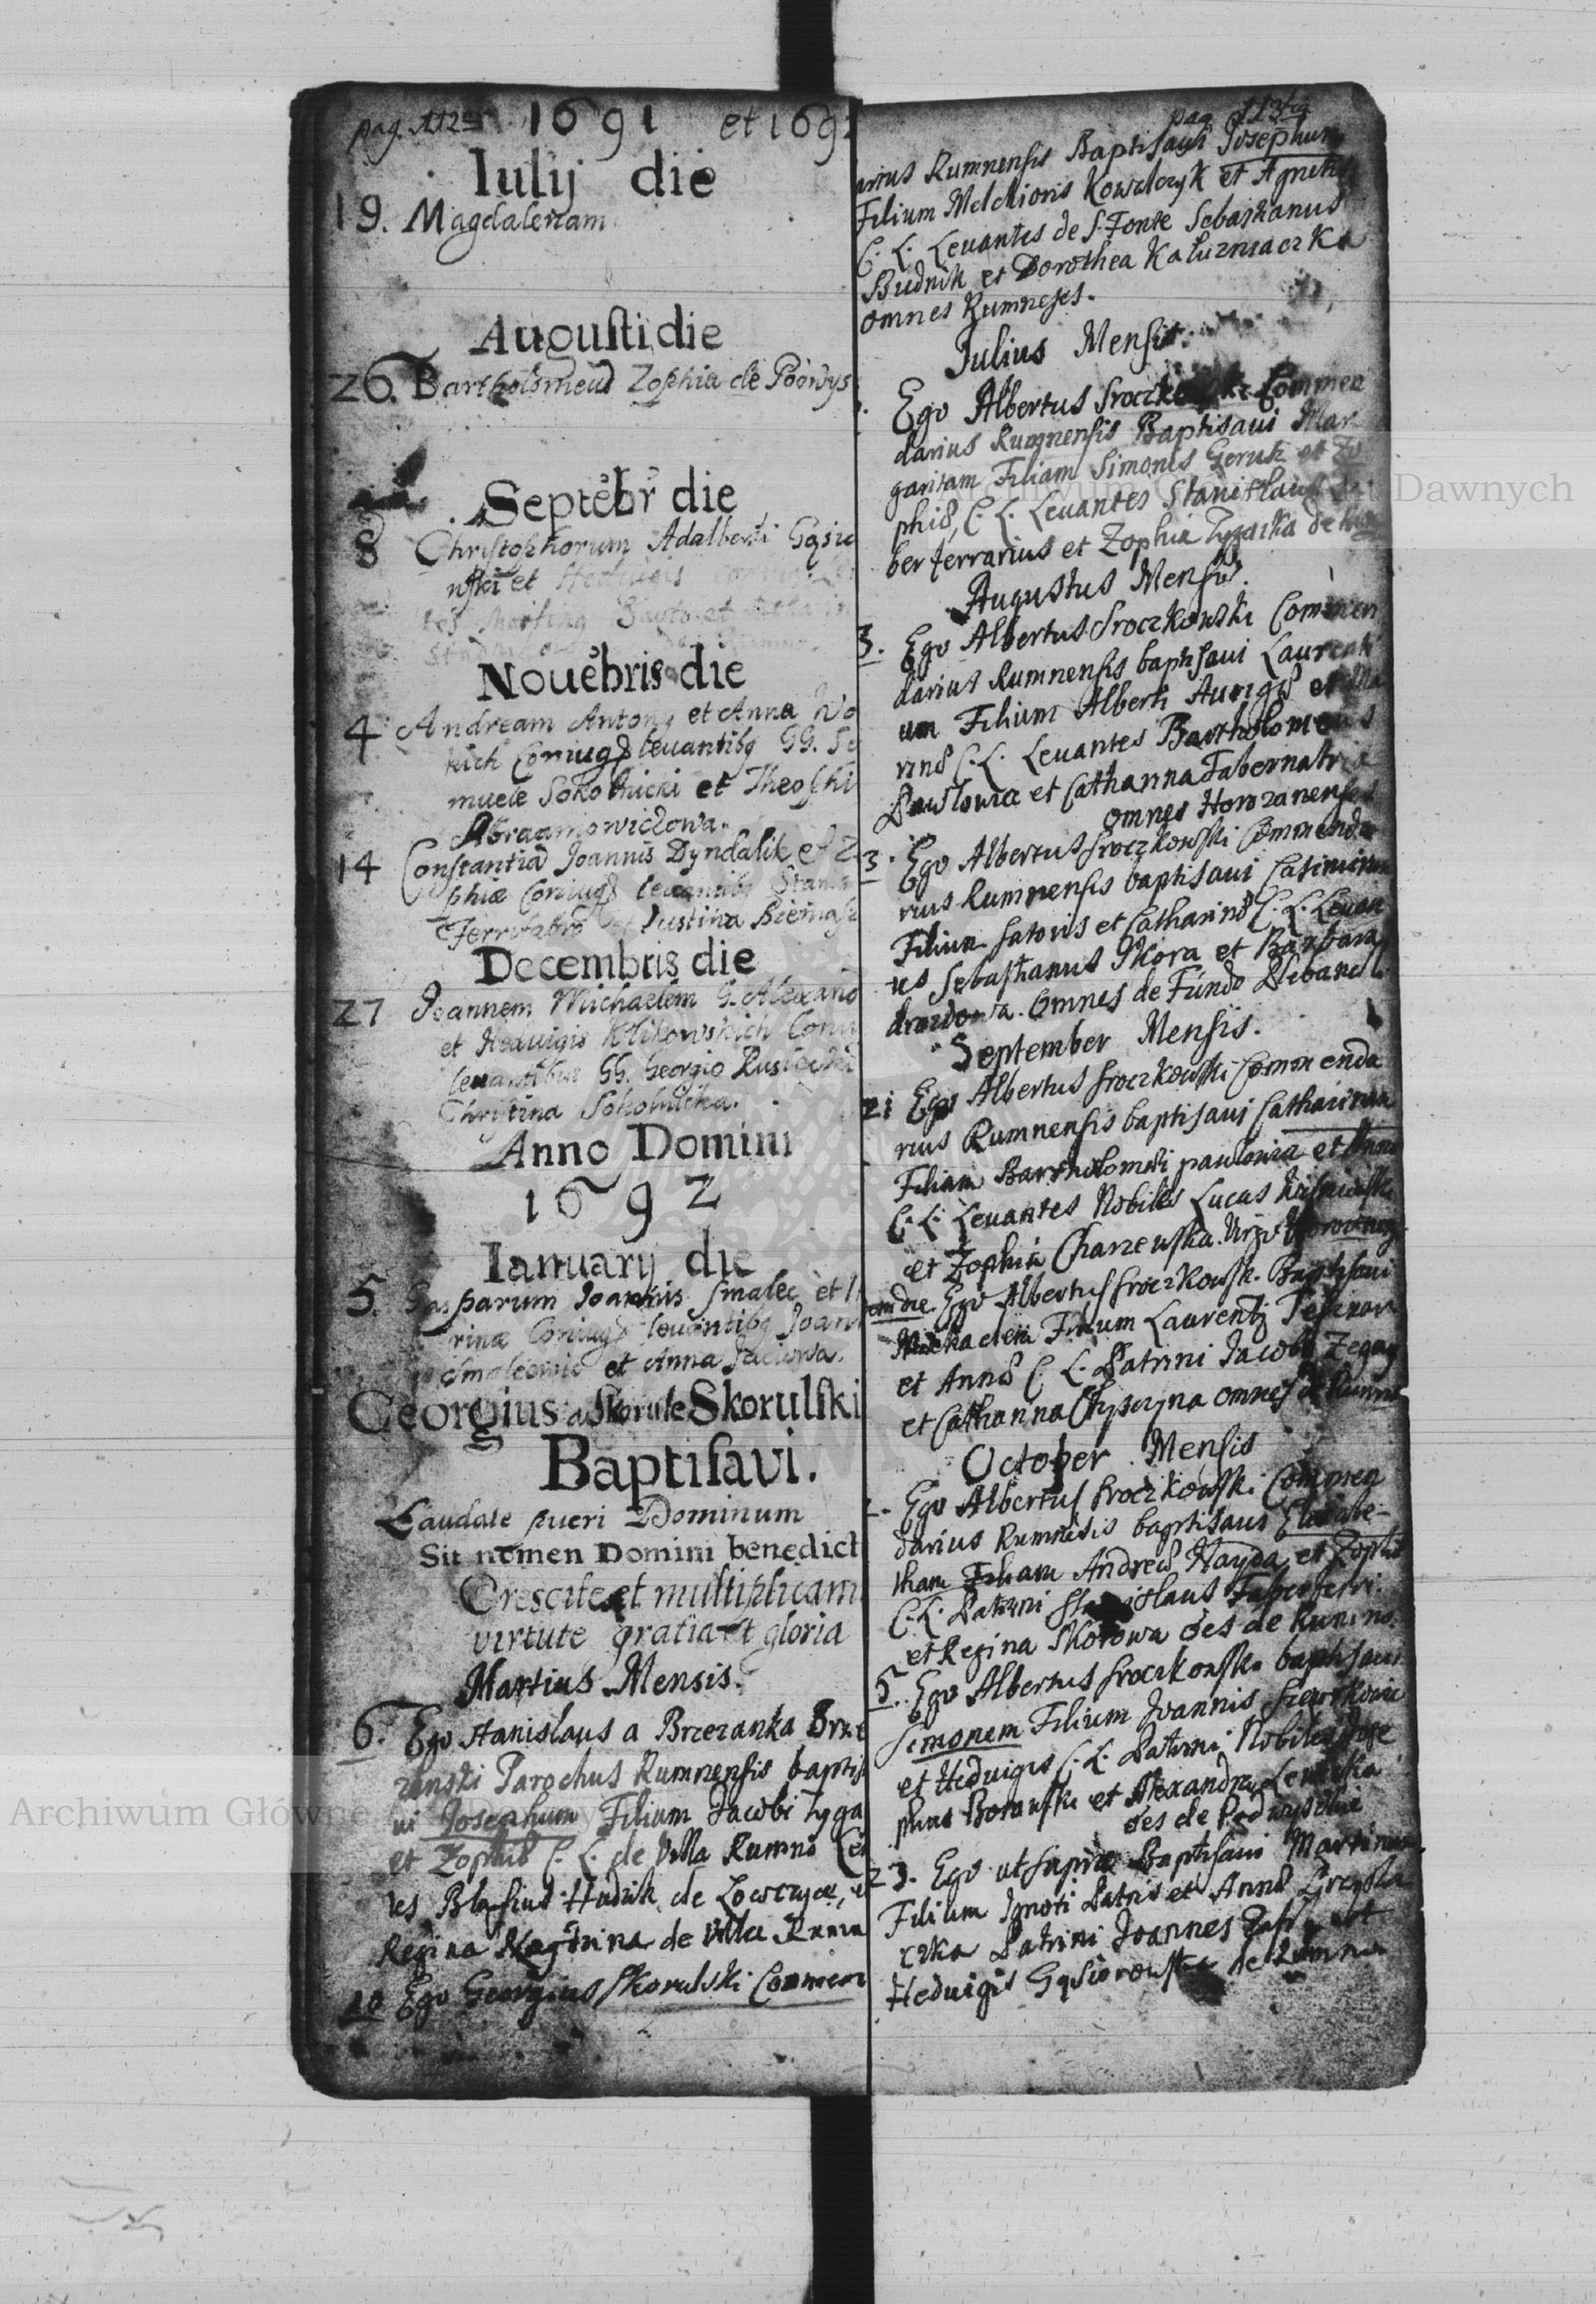 pag. 112 1691 et 169
Iulij die
19. Magdalenam
Augusti die
26. Bartholomeus Zophia de Podwys
Septēbr die
8 Christophorum Adalberti Gąsio
wski et Hedvigis
Nouēbris die
4 Andream Antony et Anna No
kich Coniugū leuantibq GG. Se
muele Sokolnicki et Theophi
Abraamowiczowa.
14 Constantiā Joannis Dyndalik et Z
phiæ Coniugū leuantibq Stanis
Ferrifabro et Iustina
Decembris die
27 Joannem Michaelem G. Alexand
et Hedvigis Klikowskich Coniu
leuantibus GG. Georgio Rusiecki
Christina Sokolnicka.
Anno Domini
1692
Ianuarij die
5. Gasparum Joannis Smalec et
rinæ Coniugū leuantibq Joan
et Anna
Georgius a Skorule Skorulski
Baptisavi.
Laudate pueri Dominum
Sit nomen Domini benedict
Crescite et multiplicam
virtute gratia et gloria
Martius Mensis.
6. Ego Stanislaus a Brzezanka Brze
zanski Parochus Rumnensis baptisa
ui Josephum Filium Jacobi Zyga
et Zophiæ C. L. de Villa Rumno Leuā
tes Blasius Hudzik de Lowczyce, et
Regina de Villa Rumn
20 Ego Georgius Skorulski Commen
pag. 113
arius Rumnensis Baptisaui Josephum
Filium Melchioris Kowalczyk et Agnetis
C. L. Leuantes de S. Fonte Sebastianus
Budnik et Dorothea Kałuzniaczka
omnes Rumneses.
Julius Mensis.
Ego Albertus Sroczkowski Commen
darius Rumnensis Baptisaui Mar
garitam Filiam Simonis Geruk et Zo
phiæ, C. L. Leuantes Stanislaus Fa
ber ferrarius et Zophia Zygarka de
Augustus Mensis.
3. Ego Albertus Sroczkowski Commen
darius Rumnensis baptisaui Laurenti
um Filium Alberti Aurigæ et Ma
rinæ C. L. Leuantes Bartholomeus
Pawlowicz et Catharina Tabernatrix
omnes Horozanenses
3. Ego Albertus Sroczkowski Commenda
rius Rumnensis baptisaui Casimirum
Filium Satoris et Catharinæ C. L. Leuan
tes Sebastianus Skora et Barbara
drozdowa. Omnes de Fundo Plebanali
September Mensis.
21 Ego Albertus Sroczkowski Commenda
rius Rumnensis baptisaui Catharinam
Filiam Bartholomæi pawlowicz et Annæ
C. L. Leuantes Nobiles Lucas
et Zophia Charzewska.
em die Ego Albertus Sroczkowski Baptisaui
Michaelem Filium Laurentij
et Annæ C. L. Patrini Jacobus
et Catharina omnes de Rumno
October Mensis
Ego Albertus Sroczkowski Commen
darius Rumnēsis baptisaui Elisabe-
tham Filiam Andreæ Hayda et Zophiæ
C. L. Patrini Stanislaus Faber ferri
et Regina Skorowa ōes de Rumno.
5. Ego Albertus Sroczkowski baptisaui
Simonem Filium Joannis
et Hedvigis C. L. Patrini Nobiles Jose
phus Boranski et Alexandra
ōes de Podwysokie
23. Ego ut supra Baptisaui Martinum
Filium Ignoti Patris et Annæ
czka Patrini Joannes et
Hedvigis Gąsiorowska de Rumno
Archiwum Główne Akt Dawnych
Archiwum Główne Akt Dawnych